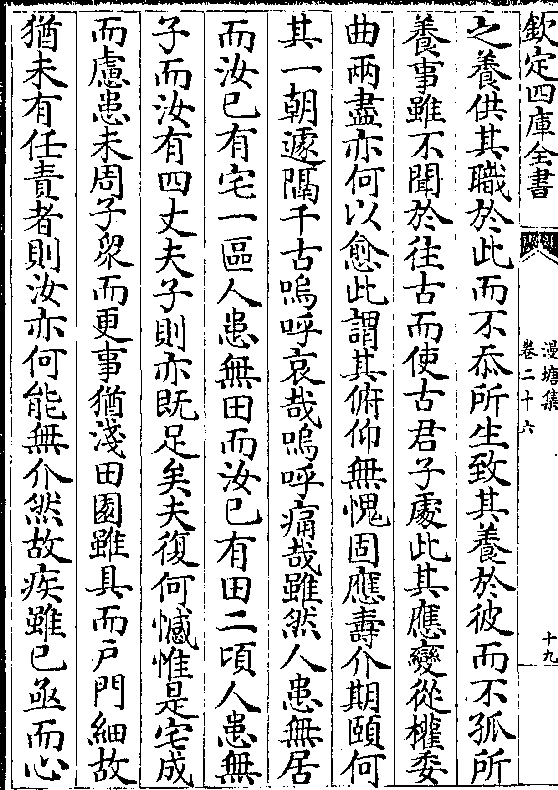 欽定四庫全書
漫塘集
卷二十六
十九
之養供其職於此而不忝所生致其養於彼而不孤所
養事雖不聞於往古而使古君子處此其應變從權委
曲兩盡亦何以愈此謂其俯仰無愧固應壽介期頤何
其一朝遽隔千古嗚呼哀哉嗚呼痛哉雖然人患無居
而汝已有宅一區人患無田而汝已有田二頃人患無
子而汝有四丈夫子則亦既足矣夫復何憾惟是宅成
而慮患未周子衆而更事猶淺田園雖具而戶門細故
猶未有任責者則汝亦何能無介然故疾雖已亟而心